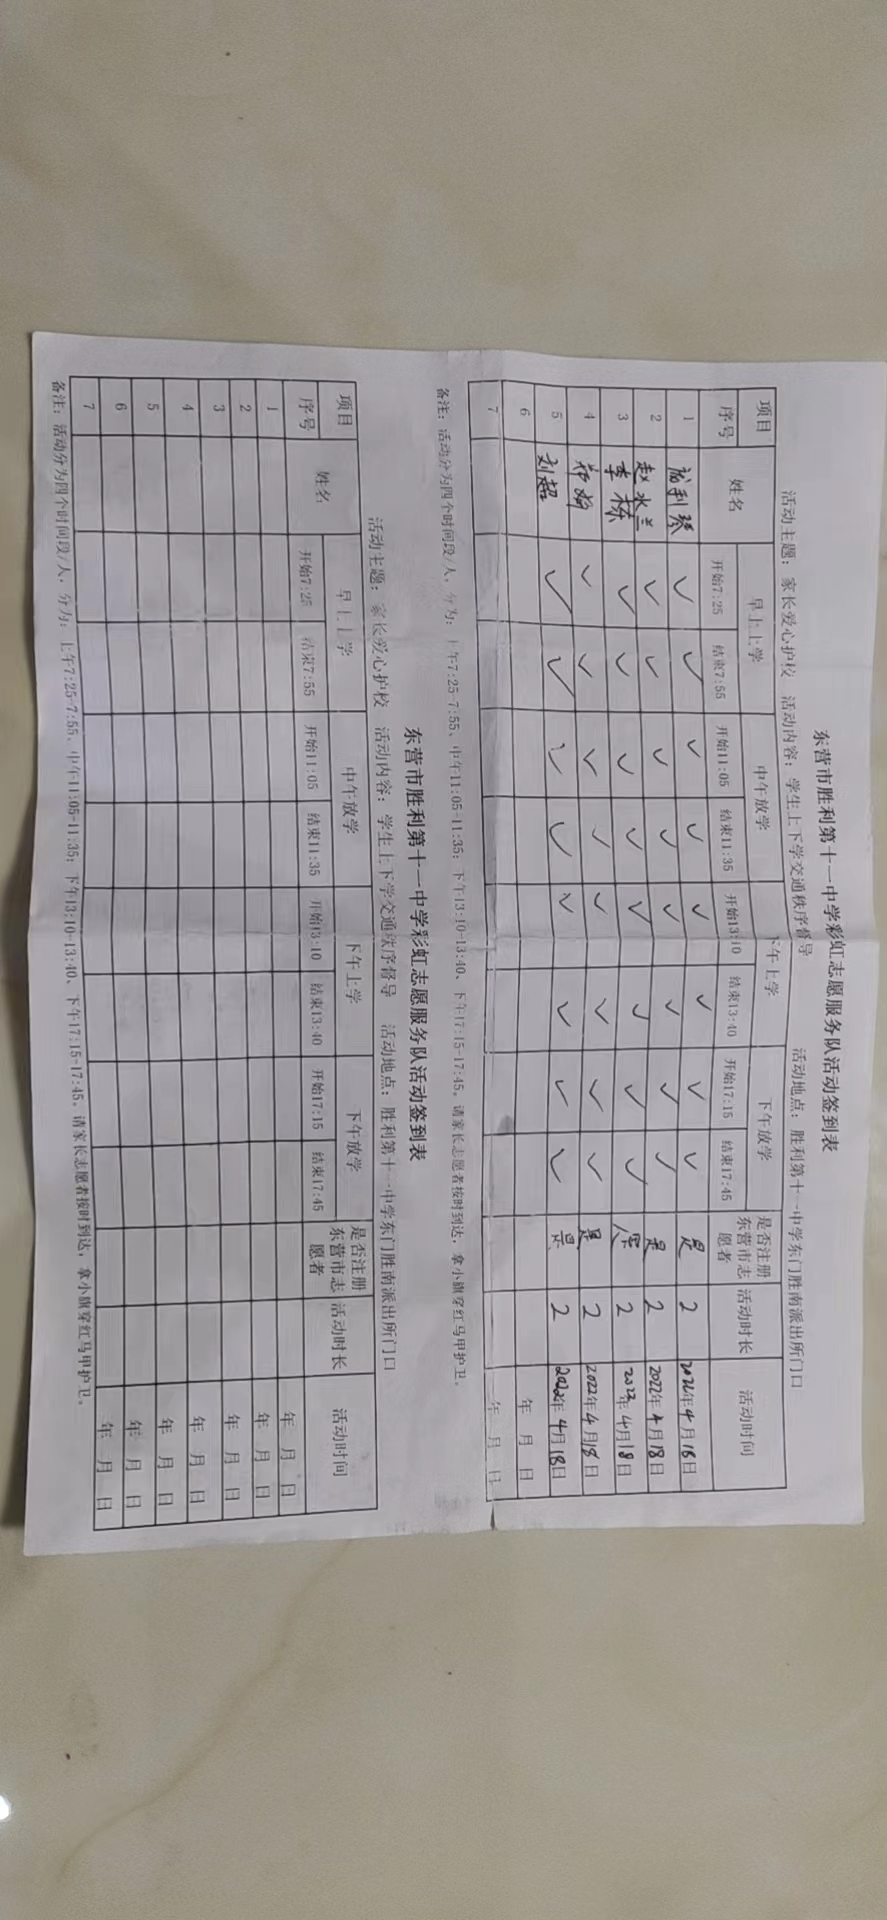 东营市胜利第十一中学彩虹志愿服务队活动签到表
活动主题：家长爱心护校 活动内容：学生上下学交通秩序督导 活动地点：胜利第十一中学东门胜南派出所门口
项目 姓名 早上上学 中午放学 下午上学 下午放学 是否注册东营市志愿者 活动时长 活动时间
序号 开始7:25 结束7:55 开始11:05 结束11:35 开始13:10 结束13:40 开始17:15 结束17:45
1 利琴 ✓ ✓ ✓ ✓ ✓ ✓ ✓ ✓ 是 2 年4月18日
2 赵水兰 ✓ ✓ ✓ ✓ ✓ ✓ ✓ ✓ 是 2 2022年4月18日
3 李栋 ✓ ✓ ✓ ✓ ✓ ✓ ✓ ✓ 2 2022年4月18日
4 ✓ ✓ ✓ ✓ ✓ ✓ ✓ ✓ 是 2 2022年4月18日
5 刘超 ✓ ✓ ✓ ✓ ✓ ✓ ✓ ✓ 是 2 2022年4月18日
6 年 月 日
7 年 月 日
备注：活动分为四个时间段/人，分为：上午7:25-7:55、中午11:05-11:35；下午13:10-13:40、下午17:15-17:45。请家长志愿者按时到达，拿小旗穿红马甲护卫。
东营市胜利第十一中学彩虹志愿服务队活动签到表
活动主题：家长爱心护校 活动内容：学生上下学交通秩序督导 活动地点：胜利第十一中学东门胜南派出所门口
项目 姓名 早上上学 中午放学 下午上学 下午放学 是否注册东营市志愿者 活动时长 活动时间
序号 开始7:25 结束7:55 开始11:05 结束11:35 开始13:10 结束13:40 开始17:15 结束17:45
1 年 月 日
2 年 月 日
3 年 月 日
4 年 月 日
5 年 月 日
6 年 月 日
7 年 月 日
备注：活动分为四个时间段/人，分为：上午7:25-7:55、中午11:05-11:35；下午13:10-13:40、下午17:15-17:45。请家长志愿者按时到达，拿小旗穿红马甲护卫。